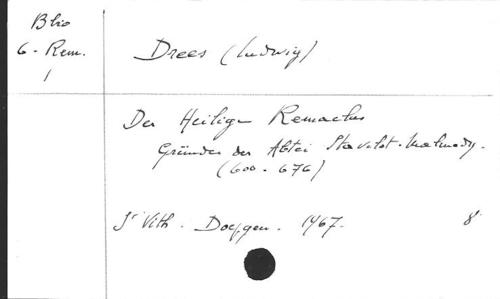 Bio
6 - Rem.
1
Drees (Ludwig)
Der Heilige Remaclus
Gründer der Abtei Stavelot-Malmedy.
(600 - 676)
St Vith. Doepgen. 1967. 8°